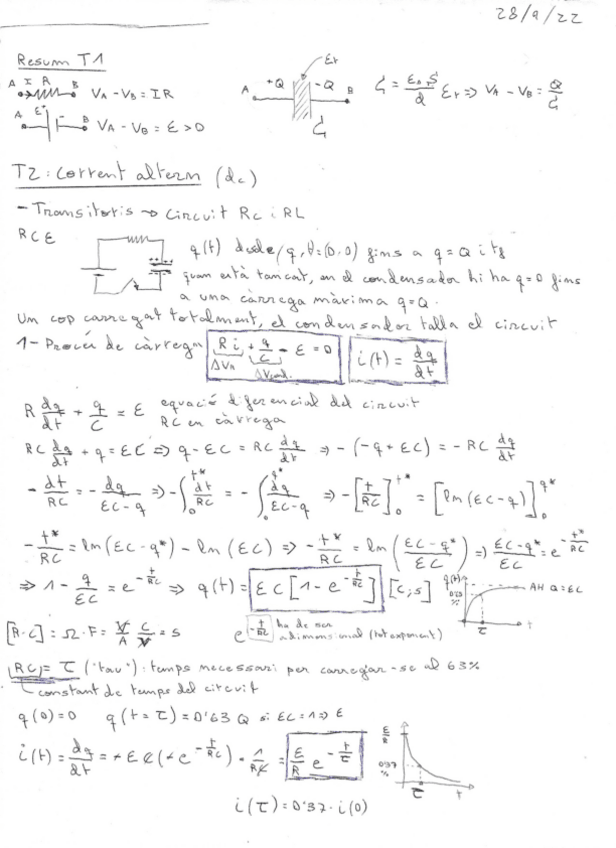 28/9/22
Resum T1
A I R B VA - VB = IR
A ε+ - B VA - VB = ε > 0
A +Q εr -Q B C
C = ε0 S/d εr => VA - VB = Q/C
T2: Corrent altern (dc)
- Transitoris → Circuit RC i RL
RCε
q(t) desde (q,t)=(0,0) fins a q = Q i tf
quan està tancat, en el condensador hi ha q=0 fins
a una càrrega màxima q=Q.
Un cop carregat totalment, el condensador talla el circuit
1- Procés de càrrega Ri + q/C - ε = 0 i(t) = dq/dt
ΔVR ΔVcond.
R dq/dt + q/C = ε equació diferencial del circuit
RC en càrrega
RC dq/dt + q = εC => q - εC = RC dq/dt => -(-q + εC) = -RC dq/dt
- dt/RC = - dq/(εC-q) => -∫0^t* dt/RC = -∫0^q* dq/(εC-q) => -[t/RC]0^t* = [ln(εC-q)]0^q*
-t*/RC = ln(εC-q*) - ln(εC) => -t*/RC = ln((εC-q*)/εC) => (εC-q*)/εC = e^(-t*/RC)
=> 1 - q/εC = e^(-t/RC) => q(t) = εC[1 - e^(-t/RC)] [C,s]
q(t) 0'63 % AH Q=εC τ t
[R·C] = Ω·F = V/A C/V = s e^(-t/RC) ha de ser
adimensional (tot exponent)
RC = τ ("tau"): temps necessari per carregar-se al 63%
constant de temps del circuit
q(0)=0 q(t=τ) = 0'63 Q si εC = 1 => ε
i(t) = dq/dt = + εC(+ e^(-t/RC)) · 1/RC = ε/R e^(-t/τ)
ε/R 0'37 % τ t
i(τ) = 0'37 · i(0)